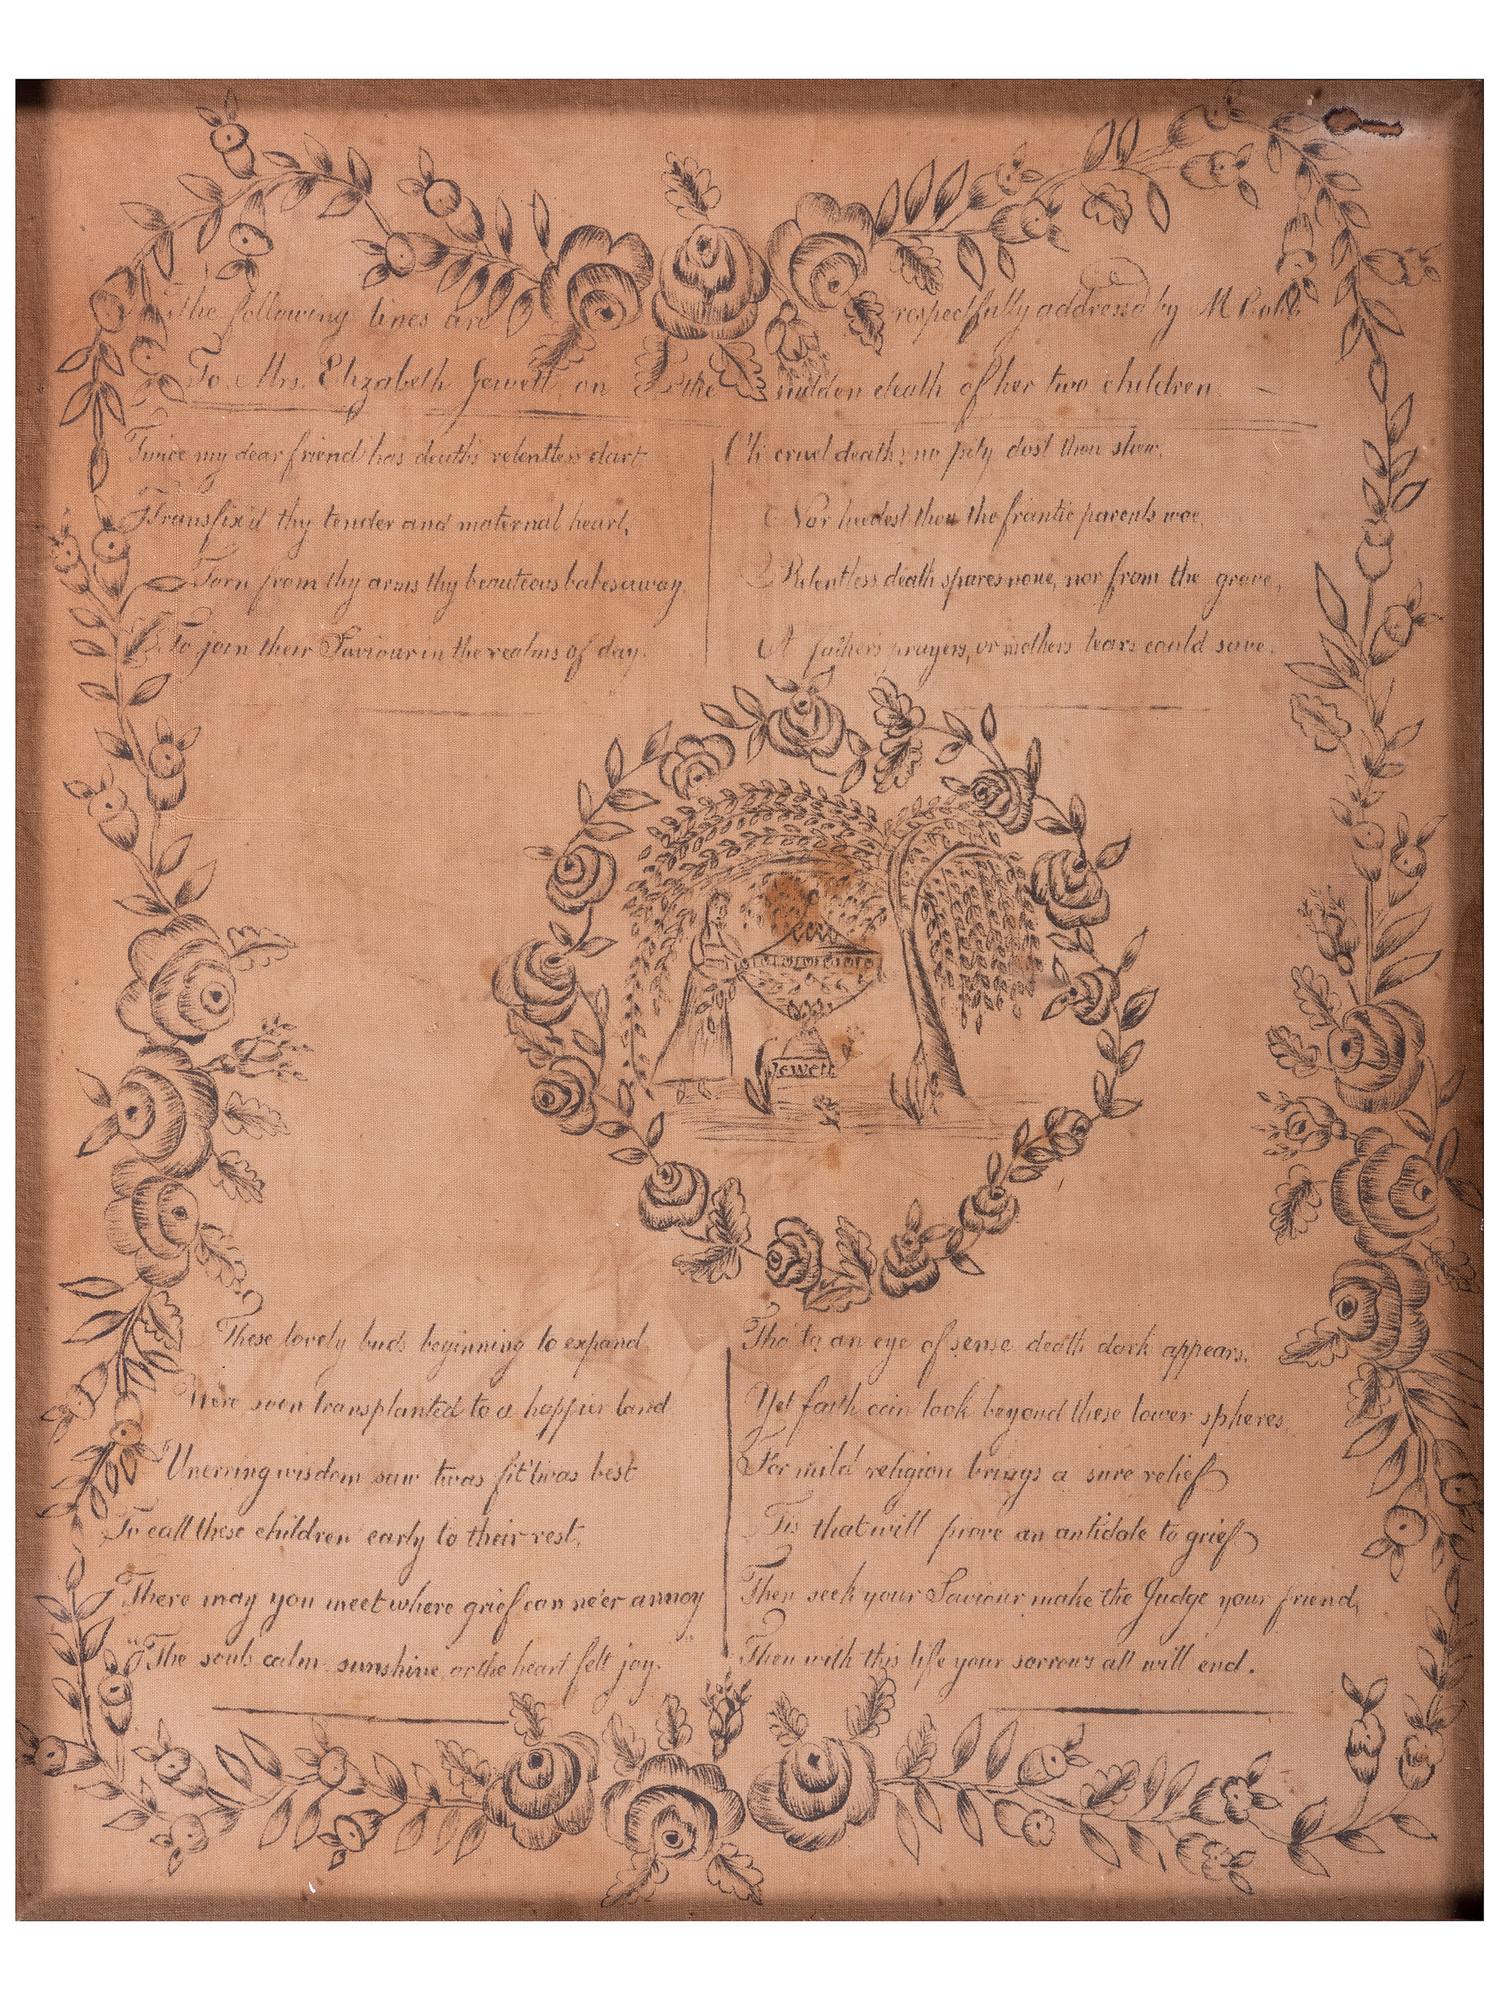 The following lines are respectfully addressed by M
To Mrs. Elizabeth Jewett, on the sudden death of her two children.
Twice my dear friend has death's relentless dart
Transfix'd thy tender and maternal heart,
Torn from thy arms thy beauteous babes away.
To join their Saviour in the realms of day.
Oh cruel death; no pity dost thou show,
Nor heedest thou the frantic parents woe,
Relentless death spares none, nor from the grave,
A father's prayers, or mothers tears could save.
Jewett
These lovely buds beginning to expand
Were soon transplanted to a happier land
Unerring wisdom saw twas fit twas best
To call these children early to their rest,
There may you meet where grief can ne'er annoy
"The souls calm sunshine, or the heart felt joy."
Tho' to an eye of sense death dark appears,
Yet faith can look beyond these lower spheres,
For mild religion brings a sure relief
Tis that will prove an antidote to grief
Then seek your Saviour, make the Judge your friend,
Then with this life your sorrows all will end.